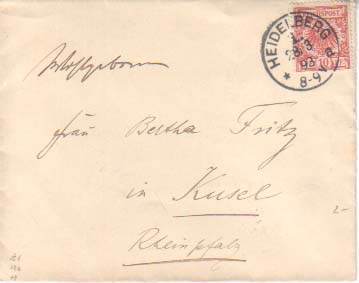 HEIDELBERG
28.8
93
8-9
REICHSPOST
10
Wohlgeboren
Frau Bertha Fritz
in Kusel
Rheinpfalz